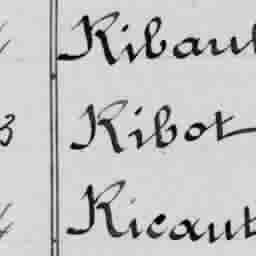 Ribaul
3 Ribot
Ricaut